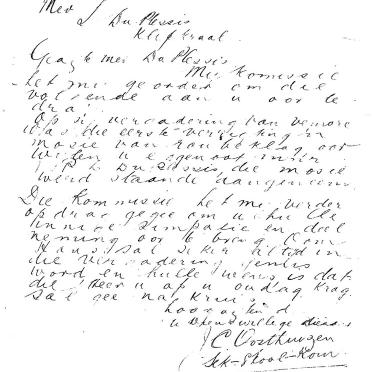 Mev J Du Plessis
Klipkraal
Geagte mev Du Plessis
My Komissie
het my georder om die
volgende aan u oor te
dra.
op si vergadering van vemore
was die eerste verrigting 'n
mosie van roubeklag oor
wylen u eggenoot mnr
P. J. Du Plessis, die mosie
werd staande aangeneem.
Die Kommissie het my verder
opdrag gegee om u hulle
innige simpatie en deel
neming oor te breng
sal seker altyd in
die vergadering
word en hulle wens is dat
die Heer u op u oudag krag
sal gee na kruis
hoogagtend
u dienswillige dienaar
J C Oosthuizen
Sek-Skool-Kom